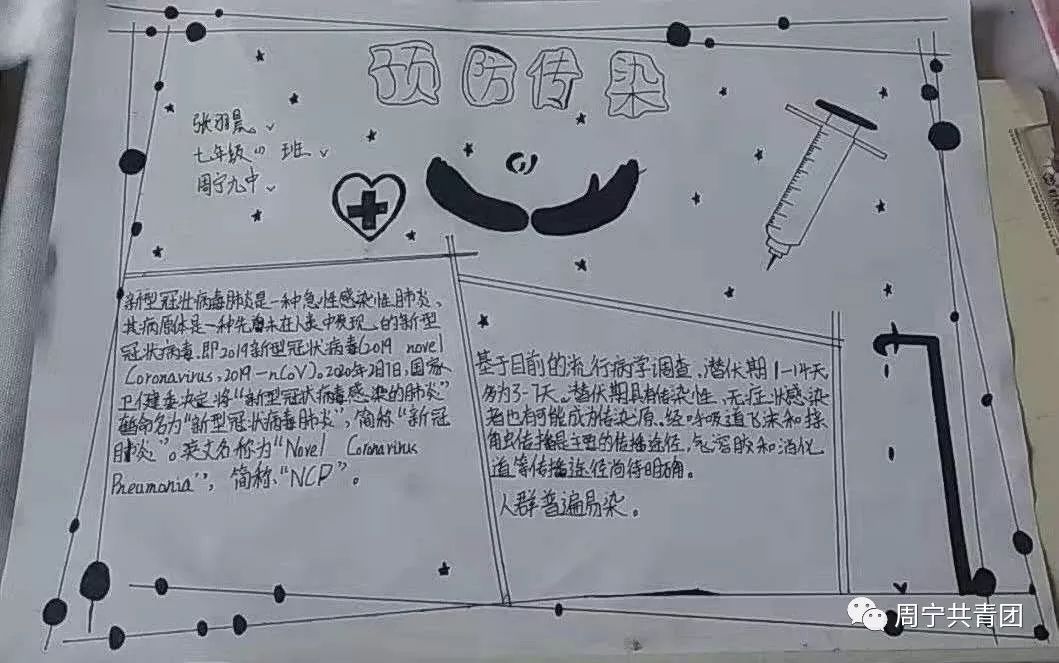 预防传染
张羽晨
七年级(1)班
周宁九中
新型冠状病毒肺炎是一种急性感染性肺炎、
其病原体是一种先曾未在人类中发现的新型
冠状病毒.即2019新型冠状病毒(2019 novel
Coronavirus,2019-nCoV)。2020年2月7日,国家
卫健委决定将“新型冠状病毒感染的肺炎”
暂命名为“新型冠状病毒肺炎”,简称“新冠
肺炎”。英文名称为“Novel Coronavirus
Pneumonia”, 简称、“NCP”。
基于目前的流行病学调查、潜伏期1-14天,
多为3-7天。潜伏期具有传染性、无症状感染
者也有可能成为传染原、经呼吸道飞沫和接
触传播是主要的传播途径,气溶胶和消化
道等传播途径尚待明确。
人群普遍易染。
周宁共青团